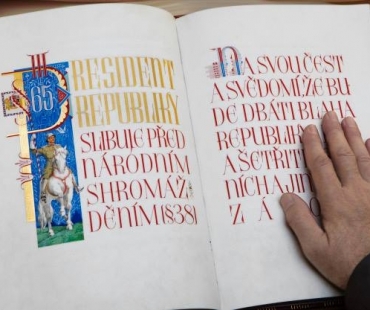 65
PRESIDENT
REPUBLIKY
SLIBUJE PŘED
NÁRODNÍM
SHROMÁŽ
DĚNÍM (§38)
NA SVOU ČEST
A SVĚDOMÍ ŽE BU
DE DBÁTI BLAHA
REPUBLIKY
A ŠETŘIT
NÍCH A JIN
Z Á